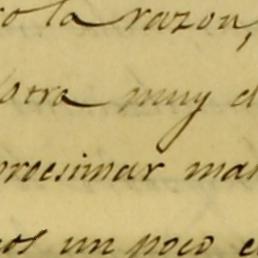 la razon,
otra muy d
procsimar mas
os un poco e